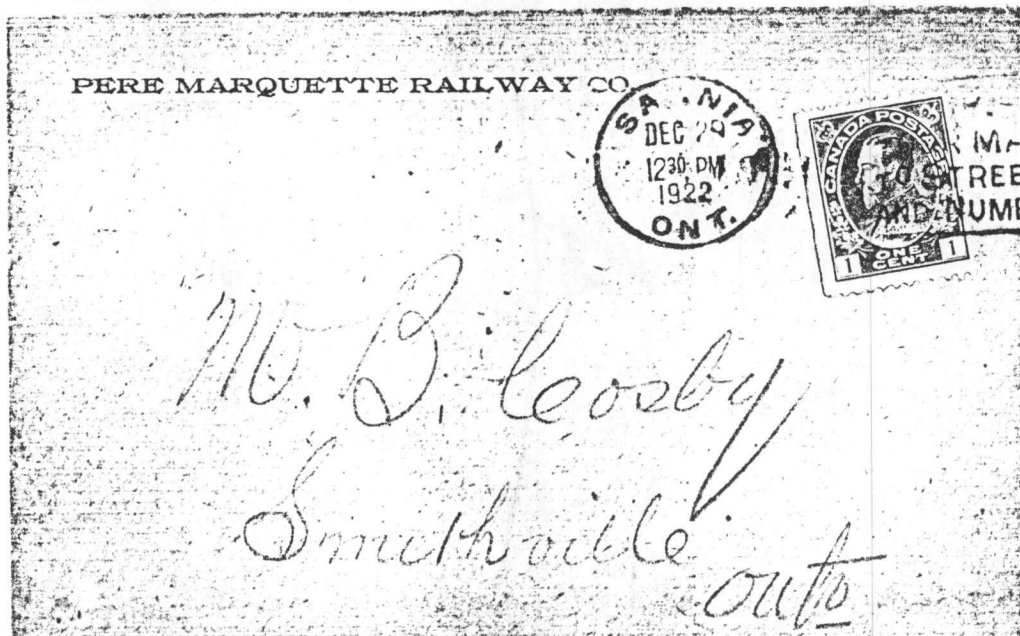 PERE MARQUETTE RAILWAY CO.
SA NIA
DEC 29
12 30 PM
1922
ONT.
CANADA POSTAGE
1 ONE CENT 1
MA
STREE
AND NUMB
M. B. Cosby
Smithville
Ont